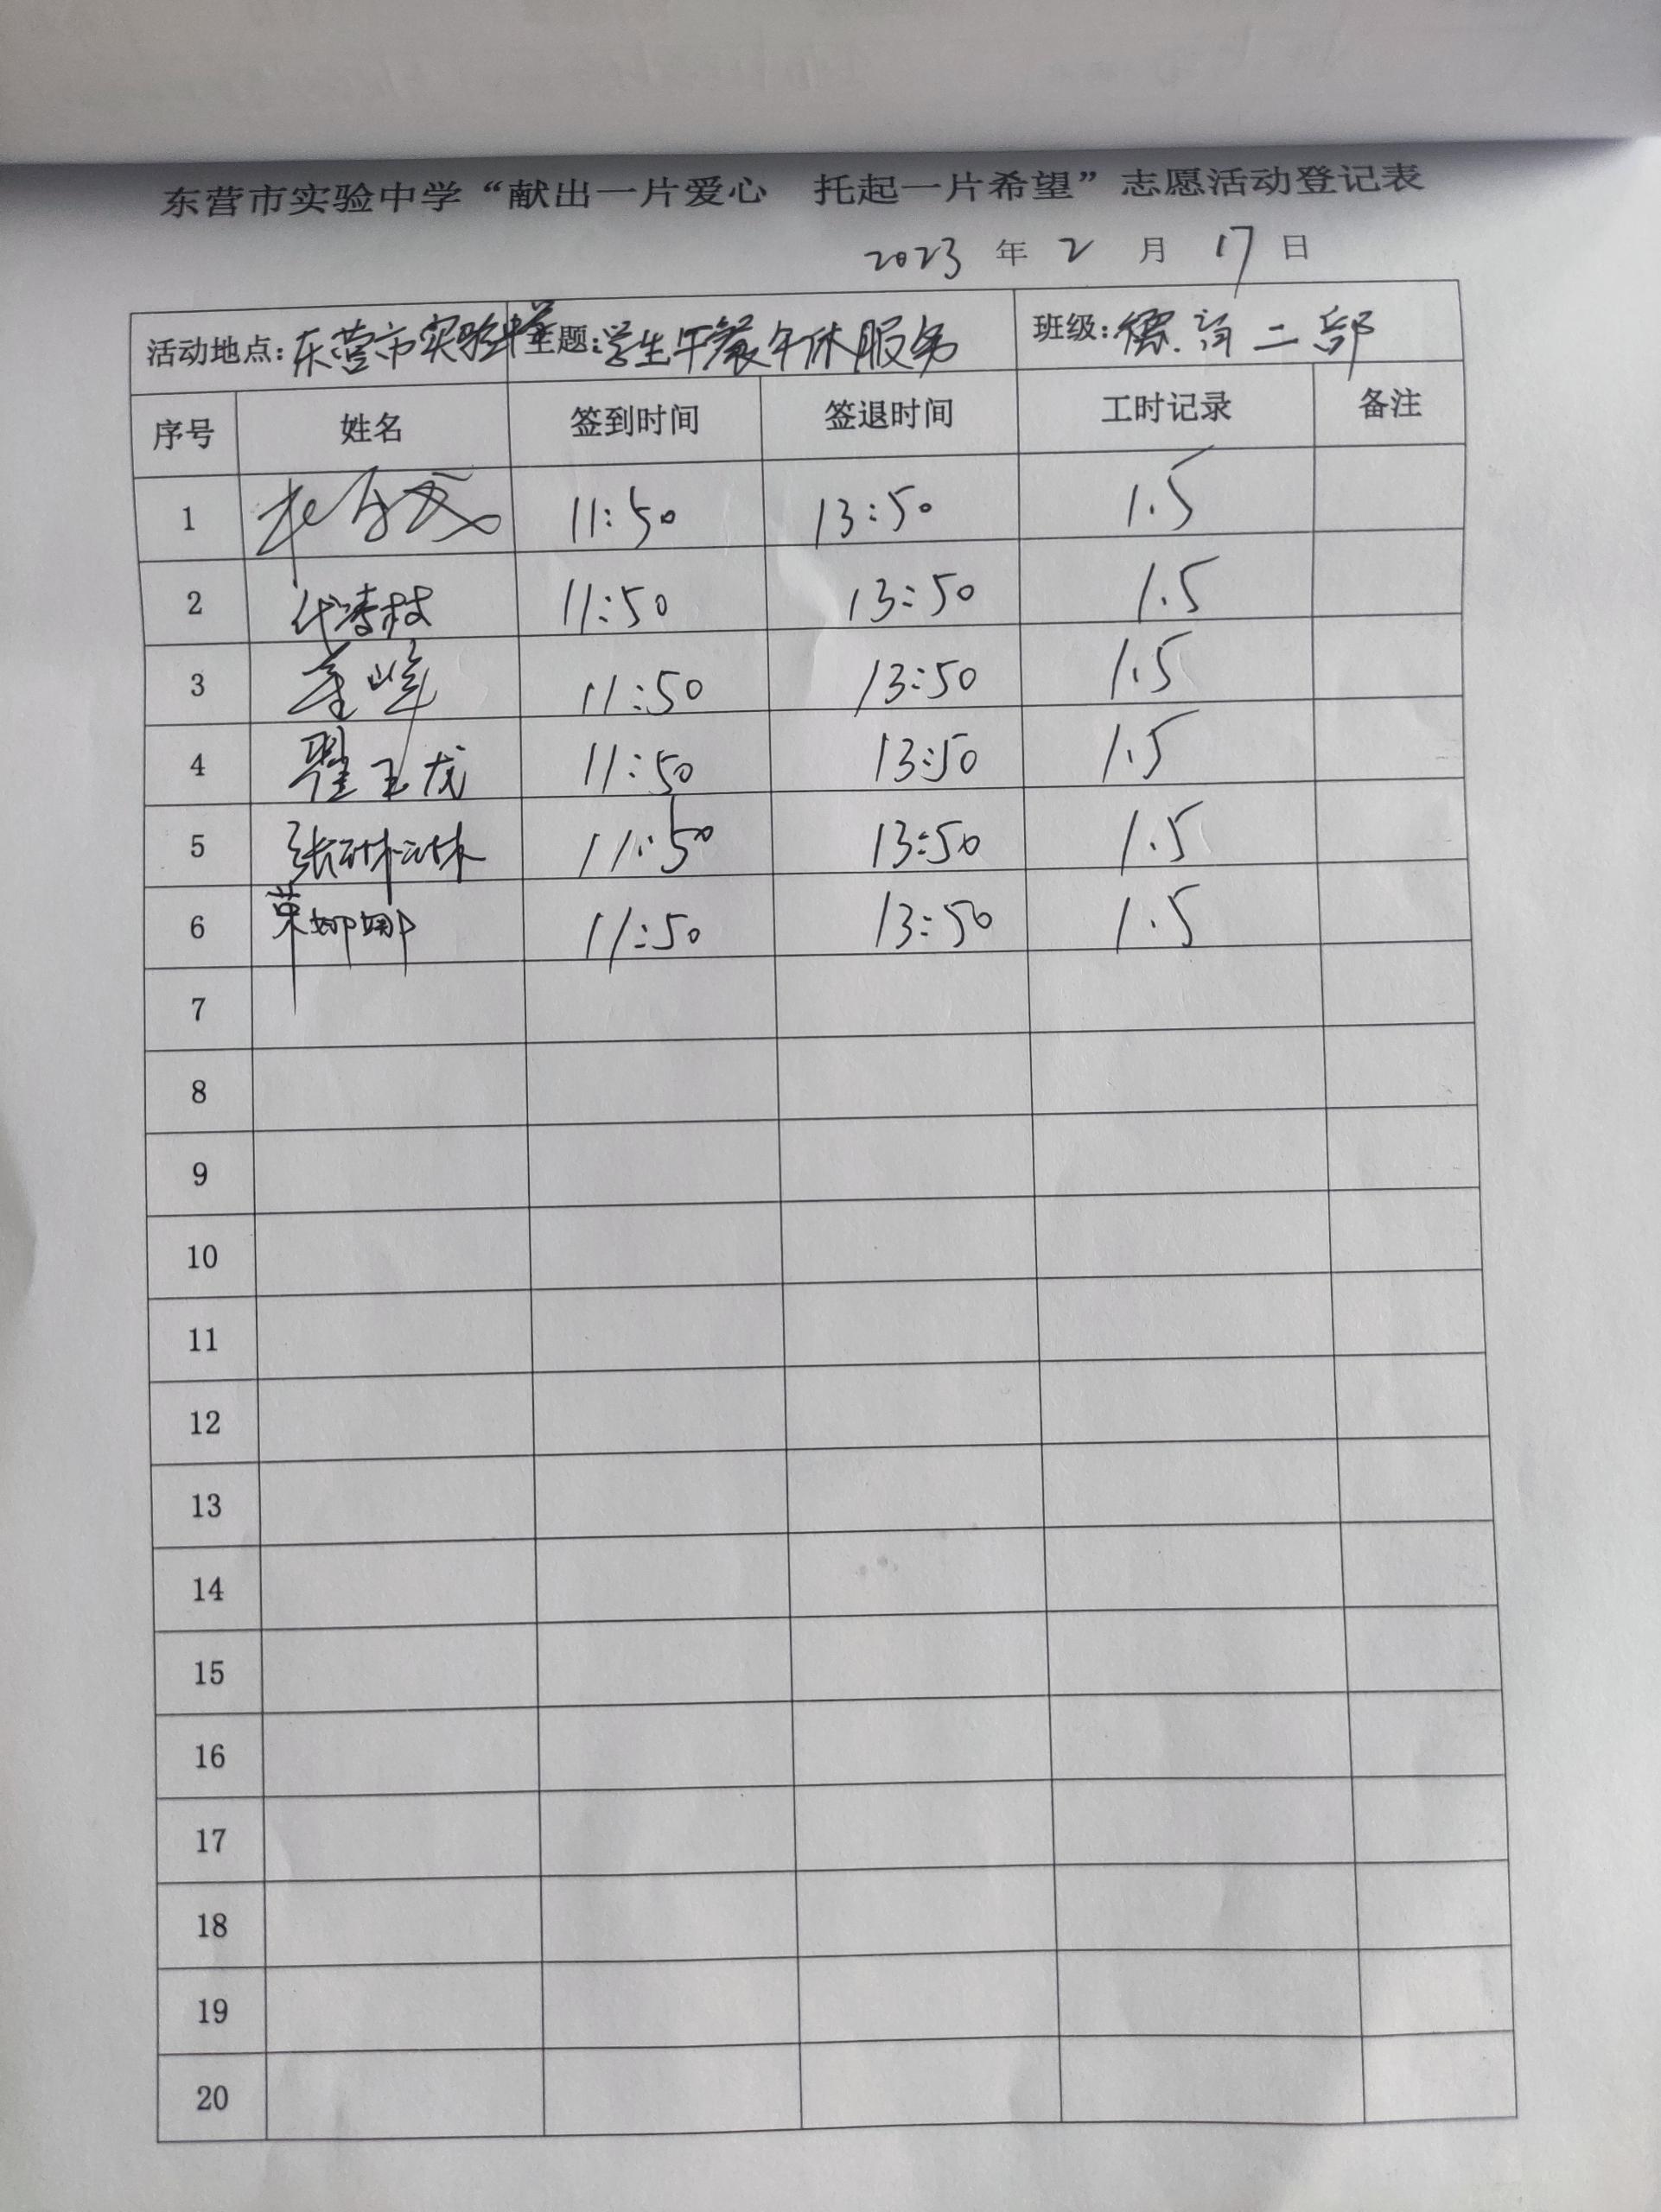 东营市实验中学“献出一片爱心 托起一片希望”志愿活动登记表
2023 年 2 月 17 日
活动地点：东营市实验中学 主题：学生午餐午休服务 班级：德育二部
序号 姓名 签到时间 签退时间 工时记录 备注
1 11:50 13:50 1.5
2 11:50 13:50 1.5
3 11:50 13:50 1.5
4 翟玉龙 11:50 13:50 1.5
5 张琳琳 11:50 13:50 1.5
6 11:50 13:50 1.5
7
8
9
10
11
12
13
14
15
16
17
18
19
20